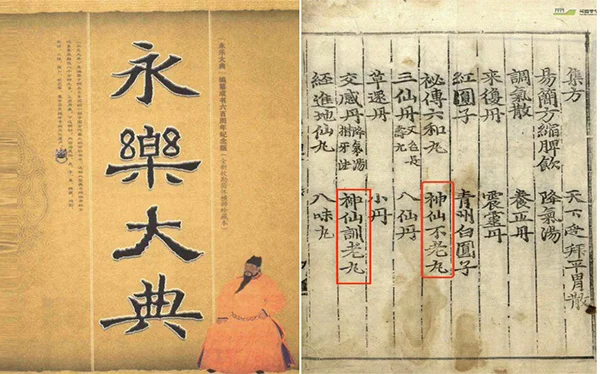 永樂大典
永乐大典
编纂成书六百周年纪念版
集方　天下受拜平胃散
易簡方縮脾飲　降氣湯
調氣散　養正丹
來復丹　震靈丹
紅圓子　青州白圓子
秘傳六和丸　神仙不老丸
三仙丹又名長壽丸　八仙丹
草還丹　小丹
交感丹降氣湯揩牙法　神仙訓老丸
經進地仙丸　八味丸